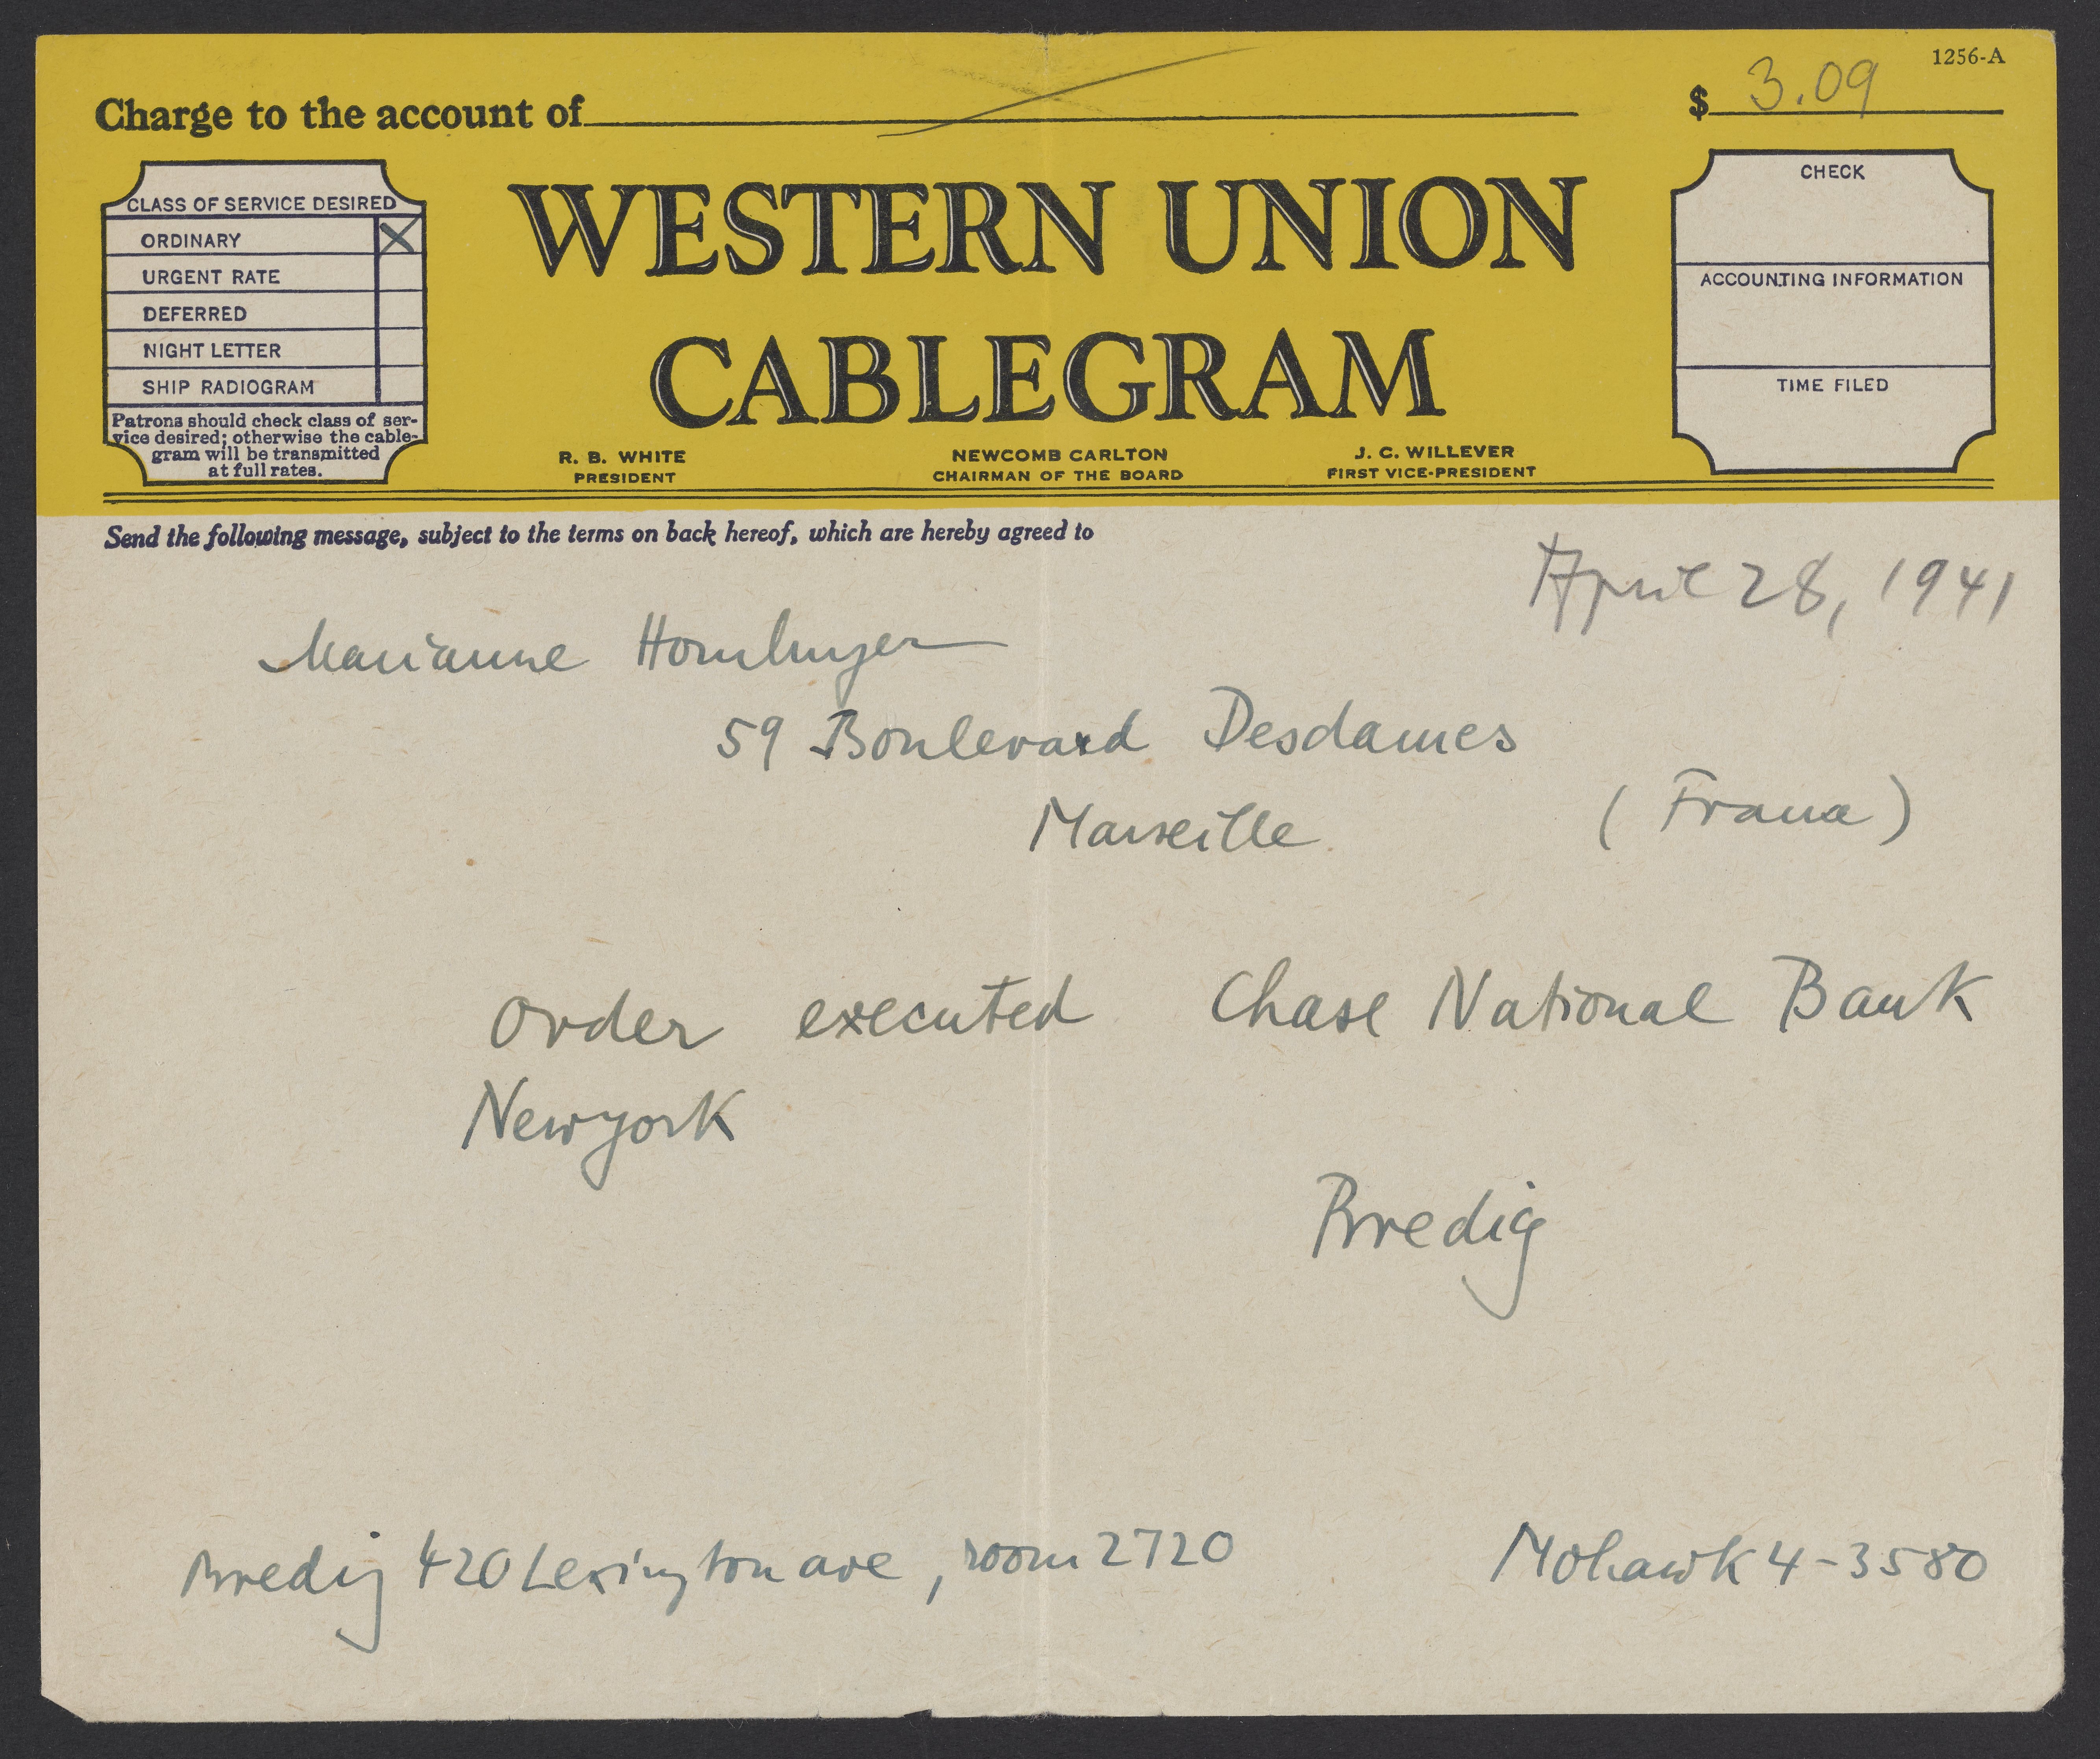 1256-A
Charge to the account of
$ 3.09
CLASS OF SERVICE DESIRED
ORDINARY X
URGENT RATE
DEFERRED
NIGHT LETTER
SHIP RADIOGRAM
Patrons should check class of ser-
vice desired; otherwise the cable-
gram will be transmitted
at full rates.
WESTERN UNION
CABLEGRAM
R. B. WHITE
PRESIDENT
NEWCOMB CARLTON
CHAIRMAN OF THE BOARD
J. C. WILLEVER
FIRST VICE-PRESIDENT
CHECK
ACCOUNTING INFORMATION
TIME FILED
Send the following message, subject to the terms on back hereof, which are hereby agreed to
April 28, 1941
Marianne Homburger
59 Boulevard Desdames
Marseille (France)
Order executed Chase National Bank
Newyork
Bredig
Bredig 420 Lexington ave, room 2720
Mohawk 4-3580